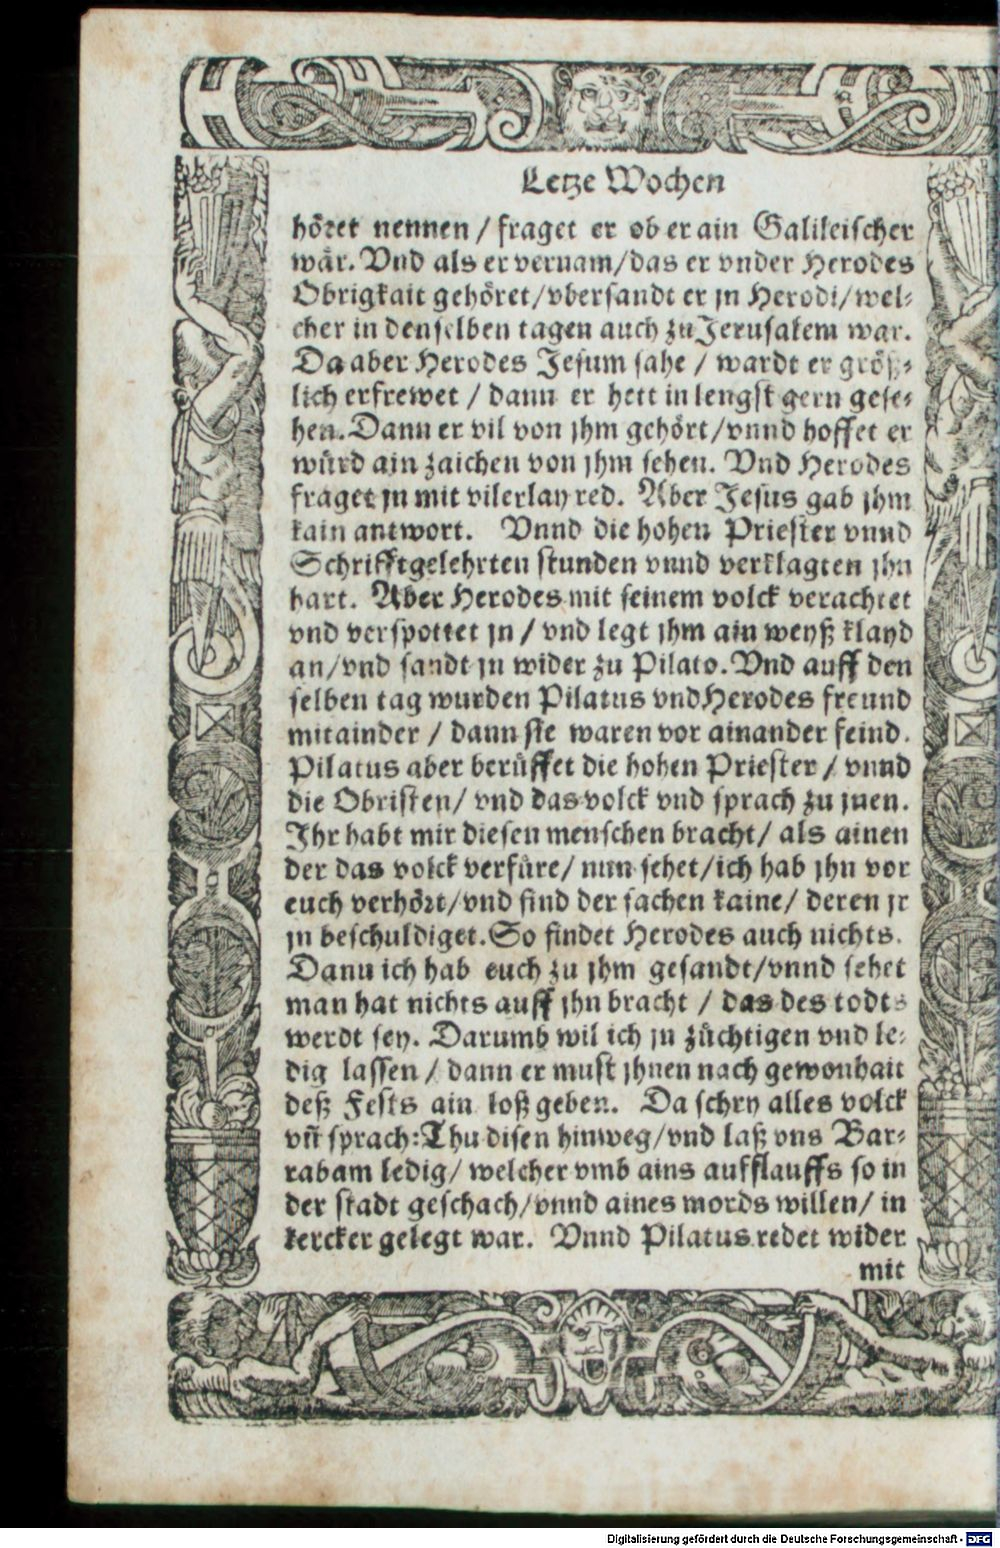 Letze Wochen
höret nennen / fraget er ob er ain Galileischer
wär. Vnd als er vernam / das er vnder Herodes
Obrigkait gehöret / vbersandt er jn Herodi / wel⸗
cher in denselben tagen auch zu Jerusalem war.
Da aber Herodes Jesum sahe / wardt er größ⸗
lich erfrewet / dann er hett in lengst gern gese⸗
hen. Dann er vil von jhm gehört / vnnd hoffet er
würd ain zaichen von jhm sehen. Vnd Herodes
fraget jn mit vilerlay red. Aber Jesus gab jhm
kain antwort. Vnnd die hohen Priester vnnd
Schrifftgelehrten stunden vnnd verklagten jhn
hart. Aber Herodes mit seinem volck verachtet
vnd verspottet jn / vnd legt jhm ain weyß klayd
an / vnd sandt jn wider zu Pilato. Vnd auff den
selben tag wurden Pilatus vnd Herodes freund
mitainder / dann sie waren vor ainander feind.
Pilatus aber berüffet die hohen Priester / vnnd
die Obristen / vnd das volck vnd sprach zu jnen.
Ihr habt mir diesen menschen bracht / als ainen
der das volck verfüre / nun sehet / ich hab jhn vor
euch verhört / vnd find der sachen kaine / deren jr
jn beschuldiget. So findet Herodes auch nichts.
Dann ich hab euch zu jhm gesandt / vnnd sehet
man hat nichts auff jhn bracht / das des todts
werdt sey. Darumb wil ich jn züchtigen vnd le⸗
dig lassen / dann er must jhnen nach gewonhait
deß Fests ain loß geben. Da schry alles volck
vñ sprach: Thu disen hinweg / vnd laß vns Bar⸗
rabam ledig / welcher vmb ains aufflauffs so in
der stadt geschach / vnnd aines mords willen / in
kercker gelegt war. Vnnd Pilatus redet wider
mit
Digitalisierung gefördert durch die Deutsche Forschungsgemeinschaft - DFG